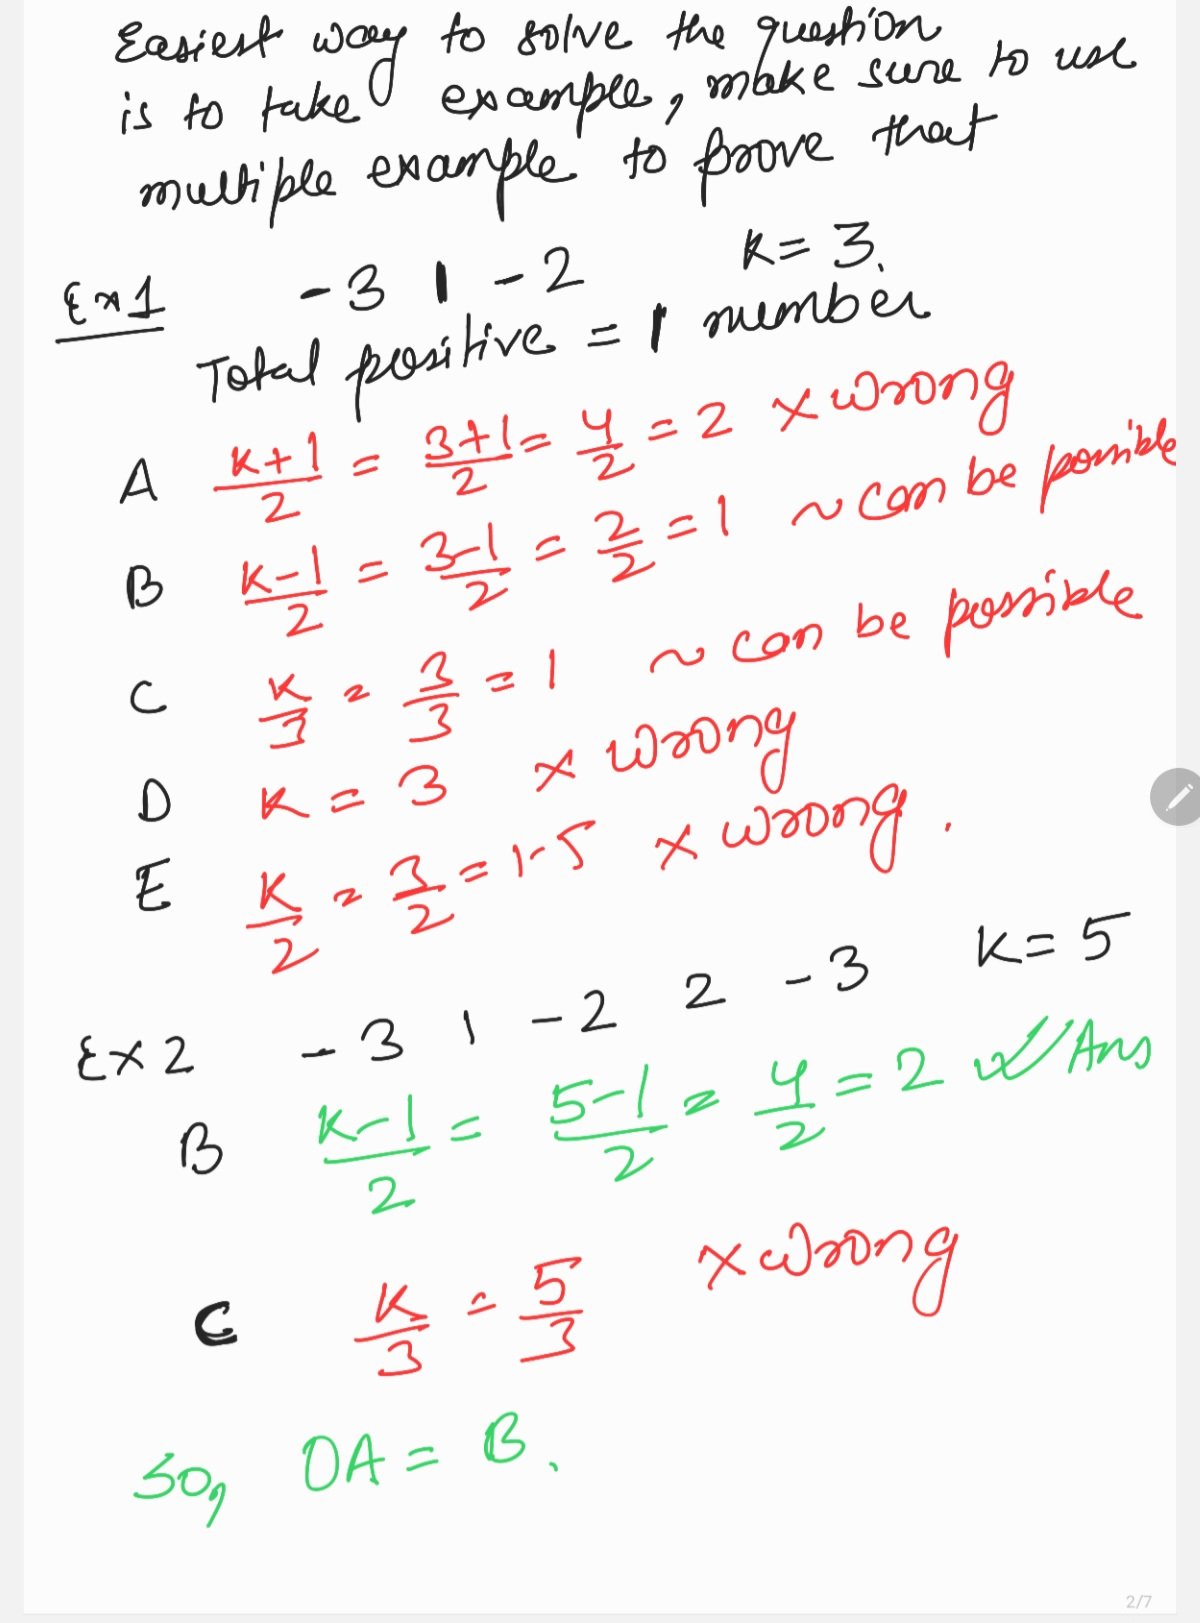 Easiest way to solve the question
is to take example, make sure to use
multiple example to prove that
Ex1 -3 1 -2 K=3.
Total positive = 1 number
A K+1/2 = 3+1/2 = 4/2 = 2 × wrong
B K-1/2 = 3-1/2 = 2/2 = 1 ~ can be possible
C K/3 = 3/3 = 1 ~ can be possible
D K = 3 × wrong
E K/2 = 3/2 = 1.5 × wrong.
Ex2 -3 1 -2 2 -3 K=5
B K-1/2 = 5-1/2 = 4/2 = 2 ✓ Ans
C K/3 = 5/3 × wrong
So, OA = B.
2/7